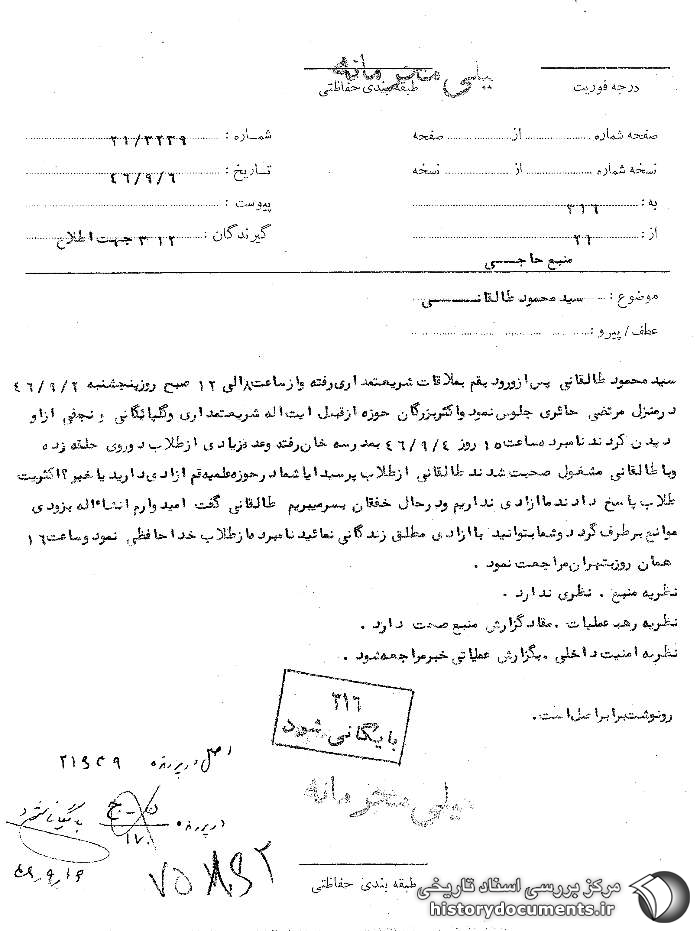 خیلی محرمانه
درجه فوریت
طبقه بندی حفاظتی
صفحه شماره از صفحه
شماره : ۲۱/۳۲۳۹
نسخه شماره از نسخه
تاریخ : ۴۶/۹/۶
به : ۳۱۶
پیوست :
از : ۲۶
گیرندگان : ۳۱۲ جهت اطلاع
منبع حاجی
موضوع : سید محمود طالقانی
عطف/پیرو :
سید محمود طالقانی پس از ورود بقم بملاقات شریعتمداری رفته و از ساعت ۸ الی ۱۲ صبح روز پنجشنبه ۴۶/۹/۲
در منزل مرتضی حائری جلوس نمود و اکثر بزرگان حوزه از قبیل ایت اله شریعتمداری و گلپایگانی و نجفی از او
دیدن کردند نامبرده ساعت ۱۵ روز ۴۶/۹/۴ بمدرسه خان رفته وعده زیادی از طلاب دور وی حلقه زده
وبا طالقانی مشغول صحبت شدند طالقانی از طلاب پرسید ایا شما در حوزه علمیه قم ازادی دارید یا خیر؟ اکثریت
طلاب پاسخ دادند ما ازادی نداریم و در حال خفقان بسر میبریم طالقانی گفت امیدوارم انشاءاله بزودی
موانع بر طرف گردد و شما بتوانید با ازادی مطلق زندگانی نمائید نامبرده از طلاب خدا حافظی نمود و ساعت ۱۶
همان روز بتهران مراجعت نمود .
نظریه منبع . نظری ندارد .
نظریه رهبر عملیات . مفاد گزارش منبع صحت دارد .
نظریه امنیت داخلی . بگزارش عملیاتی خبر مراجعه شود .
رونوشت برابر اصل است .
۳۱۶
بایگانی شود
اصل در پرونده ۲۱۹۴۹
خیلی محرمانه
در پرونده
بایگانی شود
طبقه بندی حفاظتی
مرکز بررسی اسناد تاریخی
historydocuments.ir